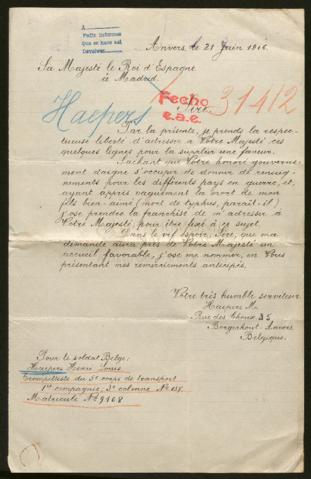 A
Petit informe
que se hace así
devolver.
Anvers, le 21 Juin 1916.
Sa Majesté le Roi d'Espagne
à Madrid.
Haepers
Fecho
e.a.e.
31412
Sire,
Par la présente, je prends la respec-
tueuse liberté d'adresser à Votre Majesté, ces
quelques lignes pour la supplier une faveur.
Sachant que Votre honoré gouverne-
ment daigne s'occuper de donner de rensei-
gnements pour les différents pays en guerre, et,
ayant appris vaguement la mort de mon
fils bien-aimé (mort de typhus, paraît-il)
j'ose prendre la franchise de m'adresser à
Votre Majesté, pour être fixé à ce sujet.
Dans le vif espoir, Sire, que ma
demande aura près de Votre Majesté un
accueil favorable, j'ose me nommer, en Vous
présentant mes remerciements anticipés,
Votre très humble serviteur
Haepers
Rue des 35
Borgerhout Anvers
Belgique.
Pour le soldat Belge:
Haepers Henri Louis
Trompettiste du 5e corps de transport
1re compagnie, 3e colonne No 158.
Matricule No 9168